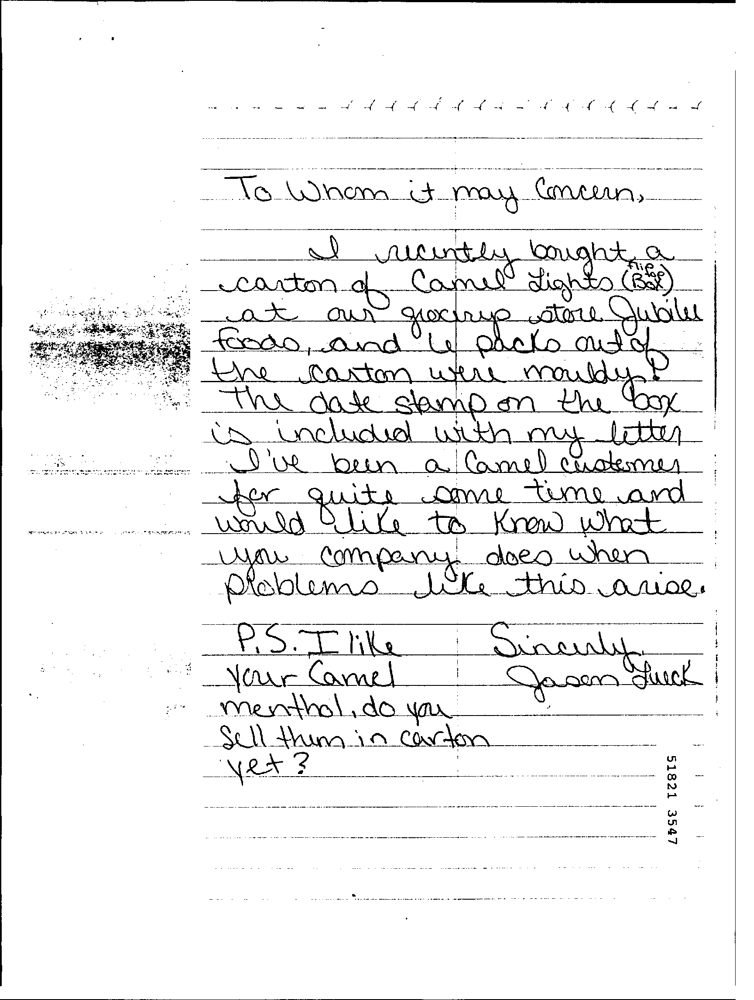 To Whom it may Concern,
I recently bought a
carton of Camel Lights (flip top Box)
at our grocerys store Jubilee
foods, and 6 packs out of
the carton were mouldy!
The date stamp on the box
is included with my letter
I've been a Camel customer
for quite some time and
would like to know what
you company does when
problems like this arise.
P.S. I like Sincerly,
your Camel Jason
menthol, do you
sell them in carton
yet?
51821 3547